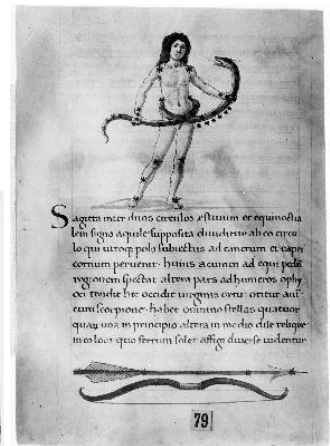 Sagitta inter duos circulos estiuum et equinoctia
lem signo aquile supposita diuiditur ab eo circu
lo qui utroq; polo subiectus ad cancrum et capri
cornum peruenit. huius acumen ad equi pedes
regionem spectat altera pars ad humeros ophy
oci tendit hic occidit uirginis ortu. oritur aut
cum scorpione. habet omnino stellas quatuor
quarum una in principio altera in medio due relique
in eo loco quo ferrum solet affigi diuerse uidentur
79